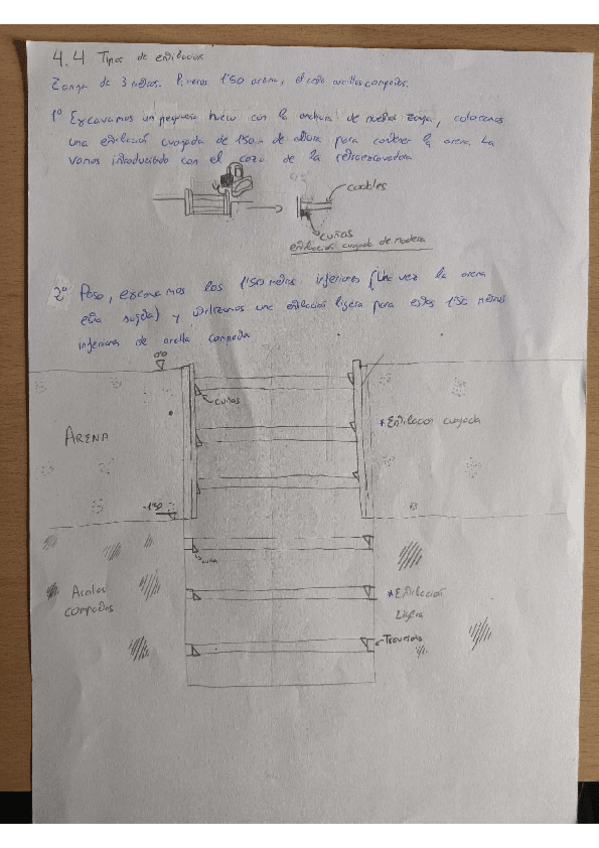 4.4 Tipos de entibacion
Zanja de 3 metros. Primeros 1'50 arena, el resto arcillas compactas.
1º Excavamos un pequeño hueco con la anchura de nuestra zanja, colocamos
una entibación cuajada de 1'50 m de altura para contener la arena. La
vamos introduciendo con el cazo de la retroexcavadora
codales
cuñas
entibación cuajada de madera
2º Paso, excavamos los 1'50 metros inferiores (una vez la arena
esta sujeta) y utilizamos una entibación ligera para estos 1'50 metros
inferiores de arcilla compacta
0'0
cuñas
ARENA
*Entibacion cuajada
-1'50
Arcillas
compactas
*Entibación
Ligera